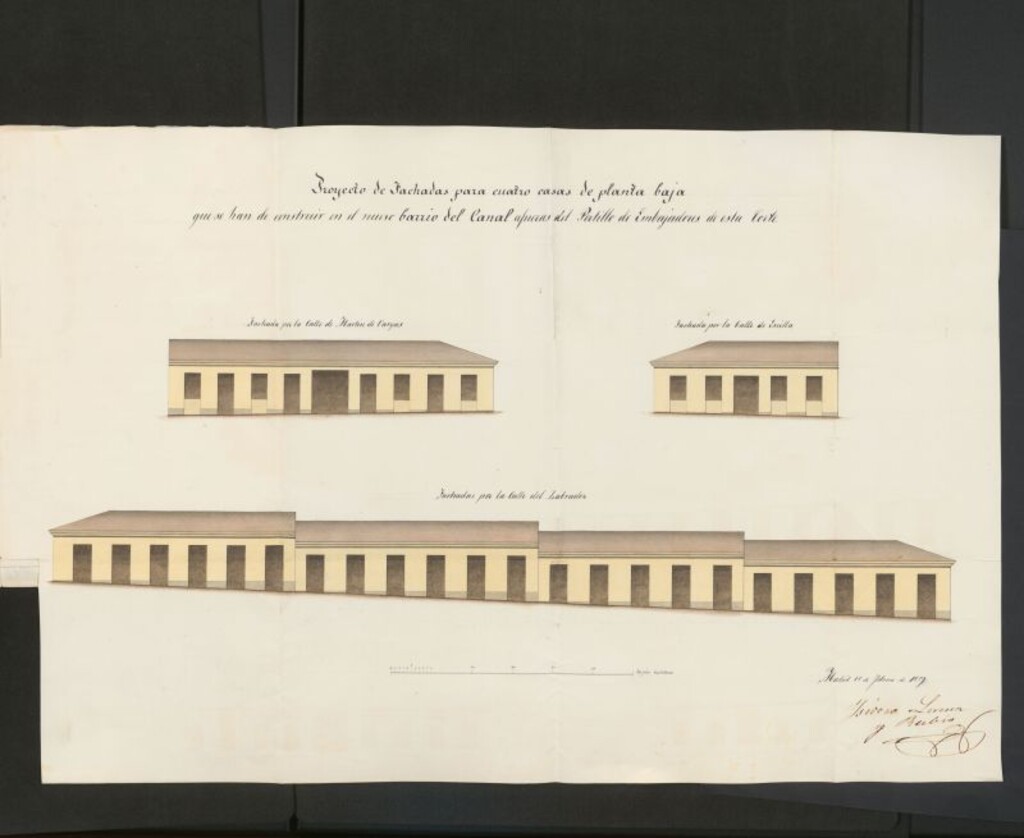 Proyecto de Fachadas para cuatro casas de planta baja
que se han de construir en el nuevo barrio del Canal afueras del Portillo de Embajadores de esta Corte.
Fachada por la Calle de Martin de Vargas
Fachada por la Calle de Ercilla
Fachadas por la Calle del Labrador
Madrid de Febrero de
Isidoro Llanos
Rubio